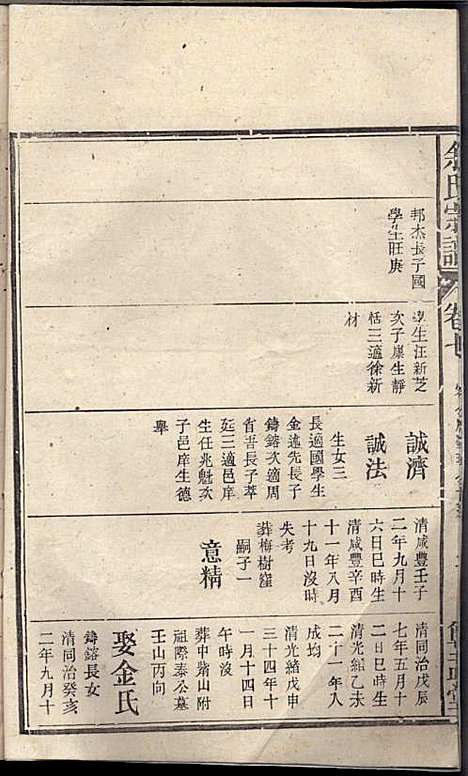 余氏宗譜
卷七
邦杰長子國
學生旺庚
學生汪新芝
次子廩生靜
恬三適徐新
材
誠濟
誠法
生女三
長適國學生
金遠先長子
鑄鎔次適周
省吾長子萃
廷三適邑庠
生任兆魁次
子邑庠生德
舉
清咸豐壬子
二年九月十
六日巳時生
清咸豐辛酉
十一年八月
十九日沒時
失考
葬梅樹窪
嗣子一
意精
清同治戊辰
七年五月十
二日巳時生
清光緒乙未
二十一年入
成均
清光緒戊申
三十四年十
一月十四日
午時沒
葬中崗山附
祖際泰公墓
壬山丙向
娶金氏
鑄鎔長女
清同治癸亥
二年九月十